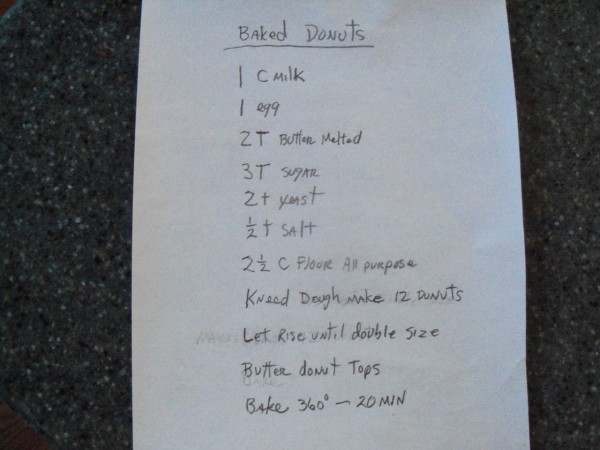 Baked Donuts
1 C Milk
1 egg
2T Butter Melted
3T Sugar
2t yeast
½ t Salt
2½ C Flour All purpose
Knead Dough make 12 Donuts
Let Rise until double size
Butter donut Tops
Bake 360° – 20 MIN